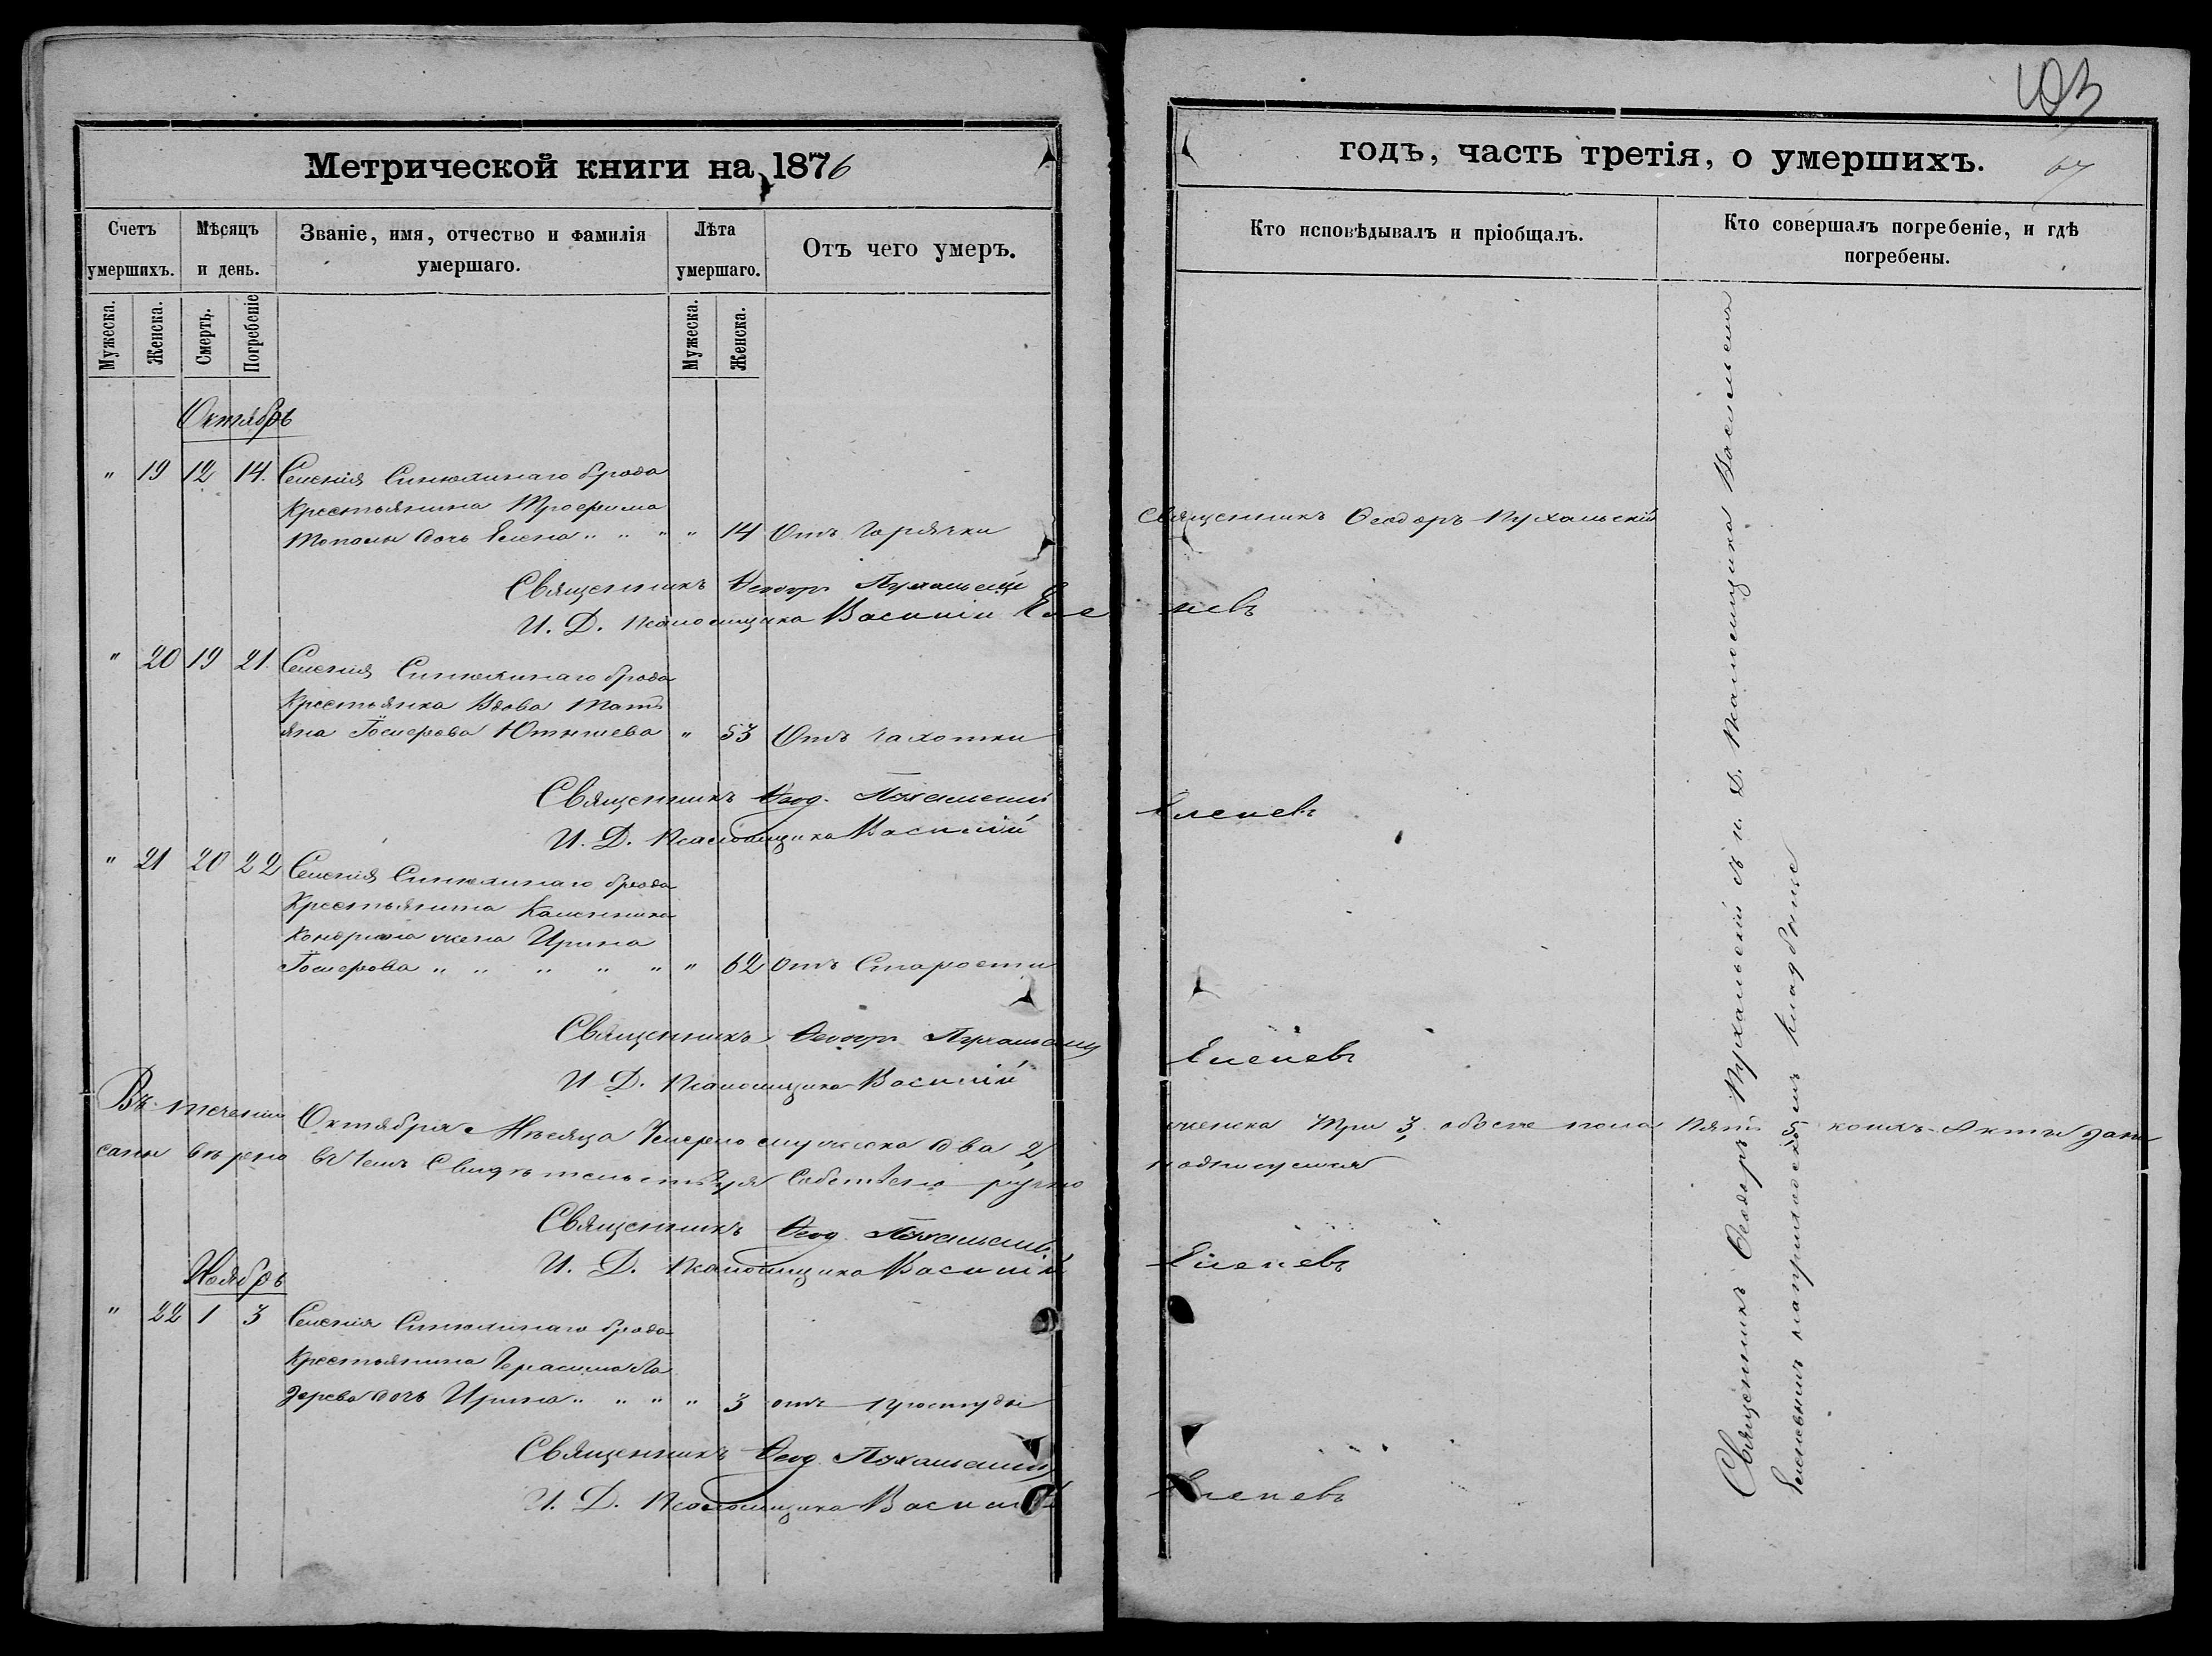 103
Метрической книги на 1876
годъ, часть третія, о умершихъ.
67
Счетъ умершихъ.
Мѣсяцъ и день.
Званіе, имя, отчество и фамилія умершаго.
Лѣта умершаго.
Отъ чего умеръ.
Кто исповѣдывалъ и пріобщалъ.
Кто совершалъ погребеніе, и гдѣ погребены.
Мужеска.
Женска.
Смерть.
Погребеніе
Мужеска.
Женска.
Октябрь
" 19 12 14. Селенія Синюхинаго брода
Крестьянина Трофима
дочь Елена " " " " 14 Отъ горячки
Священникъ Феодоръ Пухальскій
Священникъ Феодоръ Пухальскій
И. Д. Псаломщика Василій Еленевъ
" 20 19 21. Селенія Синюхинаго брода
Крестьянка Вдова Тать
яна " 53 Отъ чахотки
Священникъ Феод. Пухальскій
И. Д. Псаломщика Василій Еленевъ
" 21 20 22 Селенія Синюхинаго брода
Крестьянина
жена Ирина
" " " " " " 62 отъ Старости
Священникъ Феодоръ Пухальскій
И. Д. Псаломщика Василій Еленевъ
Въ теченіи Октября Мѣсяца Умерло мужеска два 2, женска Три 3, обоего пола Пять 5, коихъ Акты запи
саны вѣрно въ чемъ Свидѣтельствуя Собственоручно подписуемся
Священникъ Феод. Пухальскій
И. Д. Псаломщика Василій Еленевъ
Ноябрь
" 22 1 3 Селенія Синюхинаго брода
Крестьянина Герасима Ла
зарева дочь Ирина " " " " 3 отъ простуды
Священникъ Феод. Пухальскій
И. Д. Псаломщика Василій Еленевъ
Священникъ Феодоръ Пухальскій съ и. д. Псаломщика Василіемъ
Еленевымъ на приходскомъ кладбище